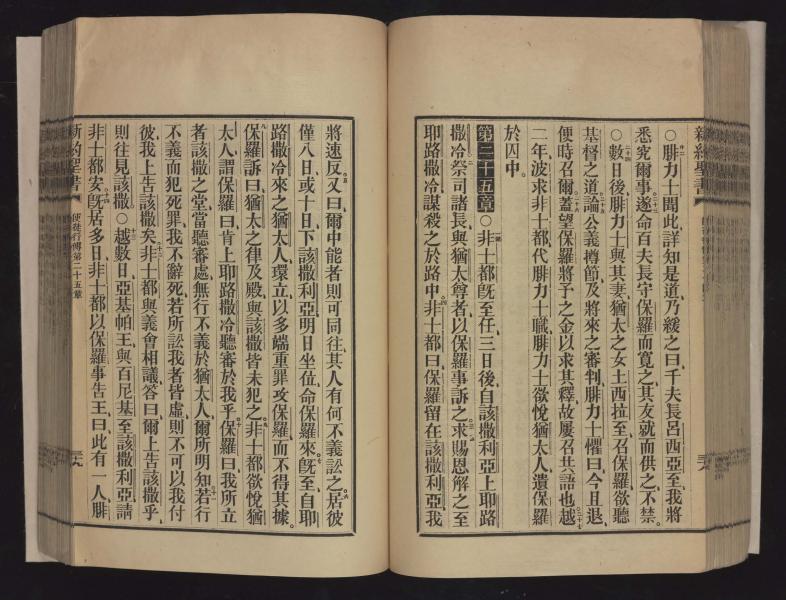 ○腓力士聞此、詳知是道、乃緩之曰、千夫長呂西亞至、我將
悉究爾事、遂命百夫長守保羅而寬之、其友就而供之不禁。
○數日後、腓力士與其妻猶太之女土西拉至、召保羅、欲聽
基督之道、論公義撙節及將來之審判、腓力士懼曰、今且退、
便時召爾、蓋望保羅將予之金、以求其釋、故屢召共語也、越
二年、波求非士都代腓力士職、腓力士欲悅猶太人、遺保羅
於囚中。
第二十五章○非士都旣至任、三日後、自該撒利亞上耶路
撒冷、祭司諸長與猶太尊者、以保羅事訴之、求賜恩解之至
耶路撒冷、謀殺之於路中、非士都曰、保羅留在該撒利亞、我
將速反、又曰、爾中能者、則可同往、其人有何不義、訟之、居彼
僅八日或十日、下該撒利亞、明日坐位、命保羅來、旣至、自耶
路撒冷來之猶太人環立、以多端重罪攻保羅、而不得其據。
保羅訴曰、猶太之律、及殿、與該撒、皆未犯之、非士都欲悅猶
太人、謂保羅曰、爾肯上耶路撒冷聽審於我乎、保羅曰、我所立
者、該撒之堂、當聽審處、無行不義於猶太人、爾所明知、若行
不義而犯死罪、我不辭死、若所訟我者皆虛、則不可以我付
彼、我上告該撒矣、非士都與議會相議、答曰、爾上告該撒乎、
則往見該撒○越數日、亞基帕王與百尼基至該撒利亞、請
非士都安、旣居多日、非士都以保羅事告王曰、此有一人、腓
新約聖書 使徒行傳第二十五章